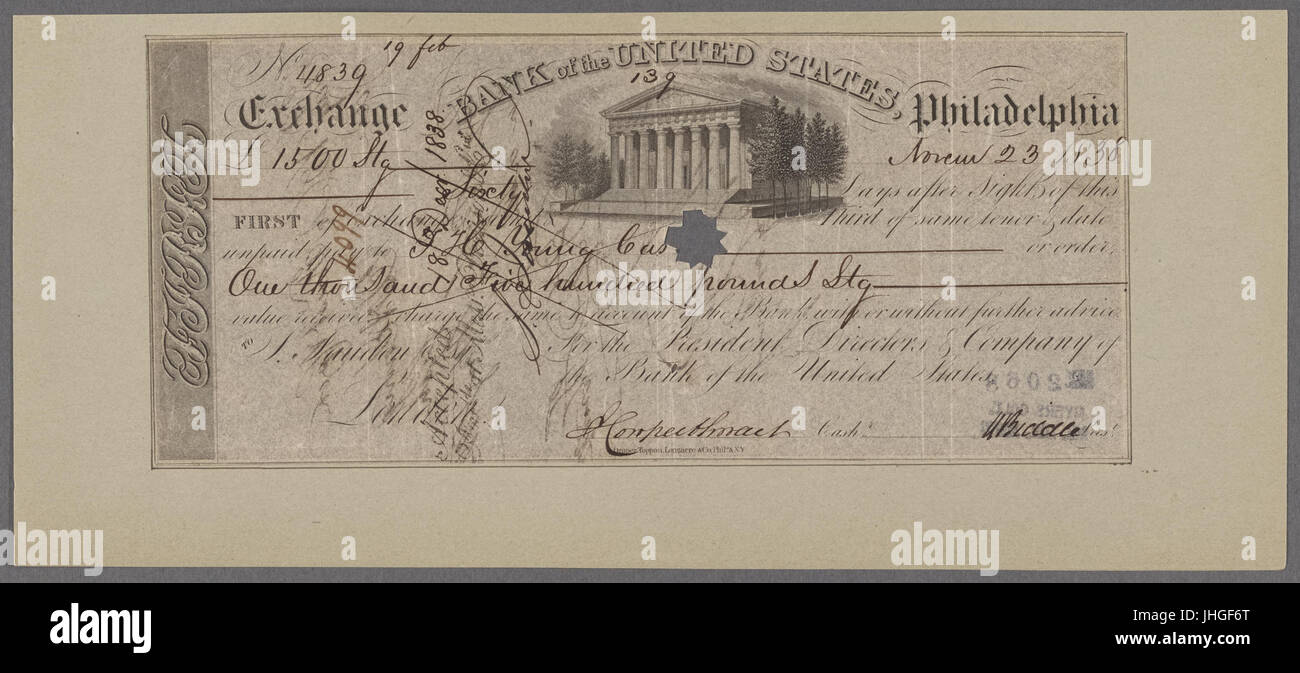 19 feb
No. 4839
BANK of the UNITED STATES,
139
Exchange
Philadelphia
£ 1500 Stg
Novem 23 1838
Sixty
Days after Sight of this
FIRST of Exchange
Third of same tenor & date
unpaid pay to
Young Cas
or order,
One thousand Five hundred pounds Stg
value received & charge the same to account of the Bank with or without further advice
TO
For the President, Directors & Company of
the Bank of the United States
London
Cowperthwait Cash.r
N Biddle Pres.t
Draper, Toppan, Longacre & Co. Phila. & N.Y.
FIRST
4099
Accepted
18 Decr 1838
2068
alamy stock photo
JHGF6T
www.alamy.com